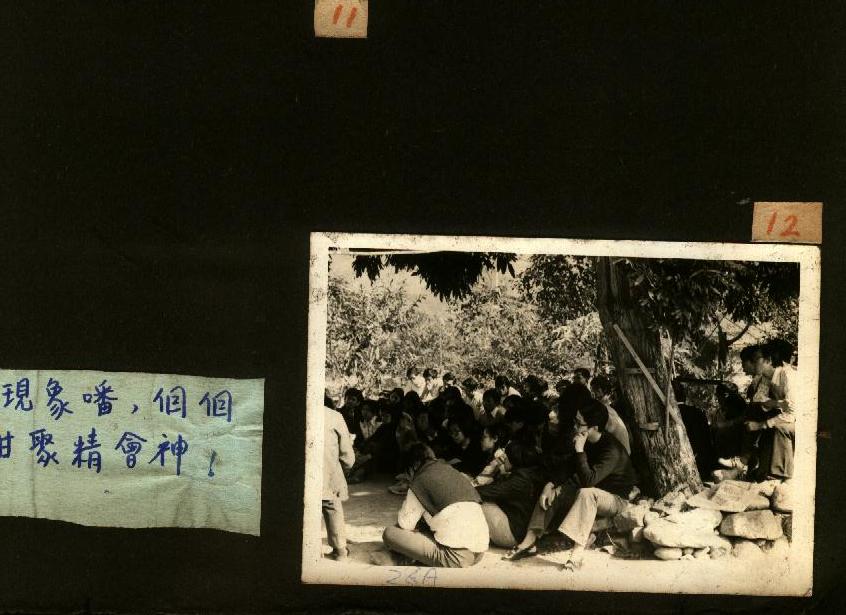 11
12
現象噃，個個
咁聚精會神！
26A